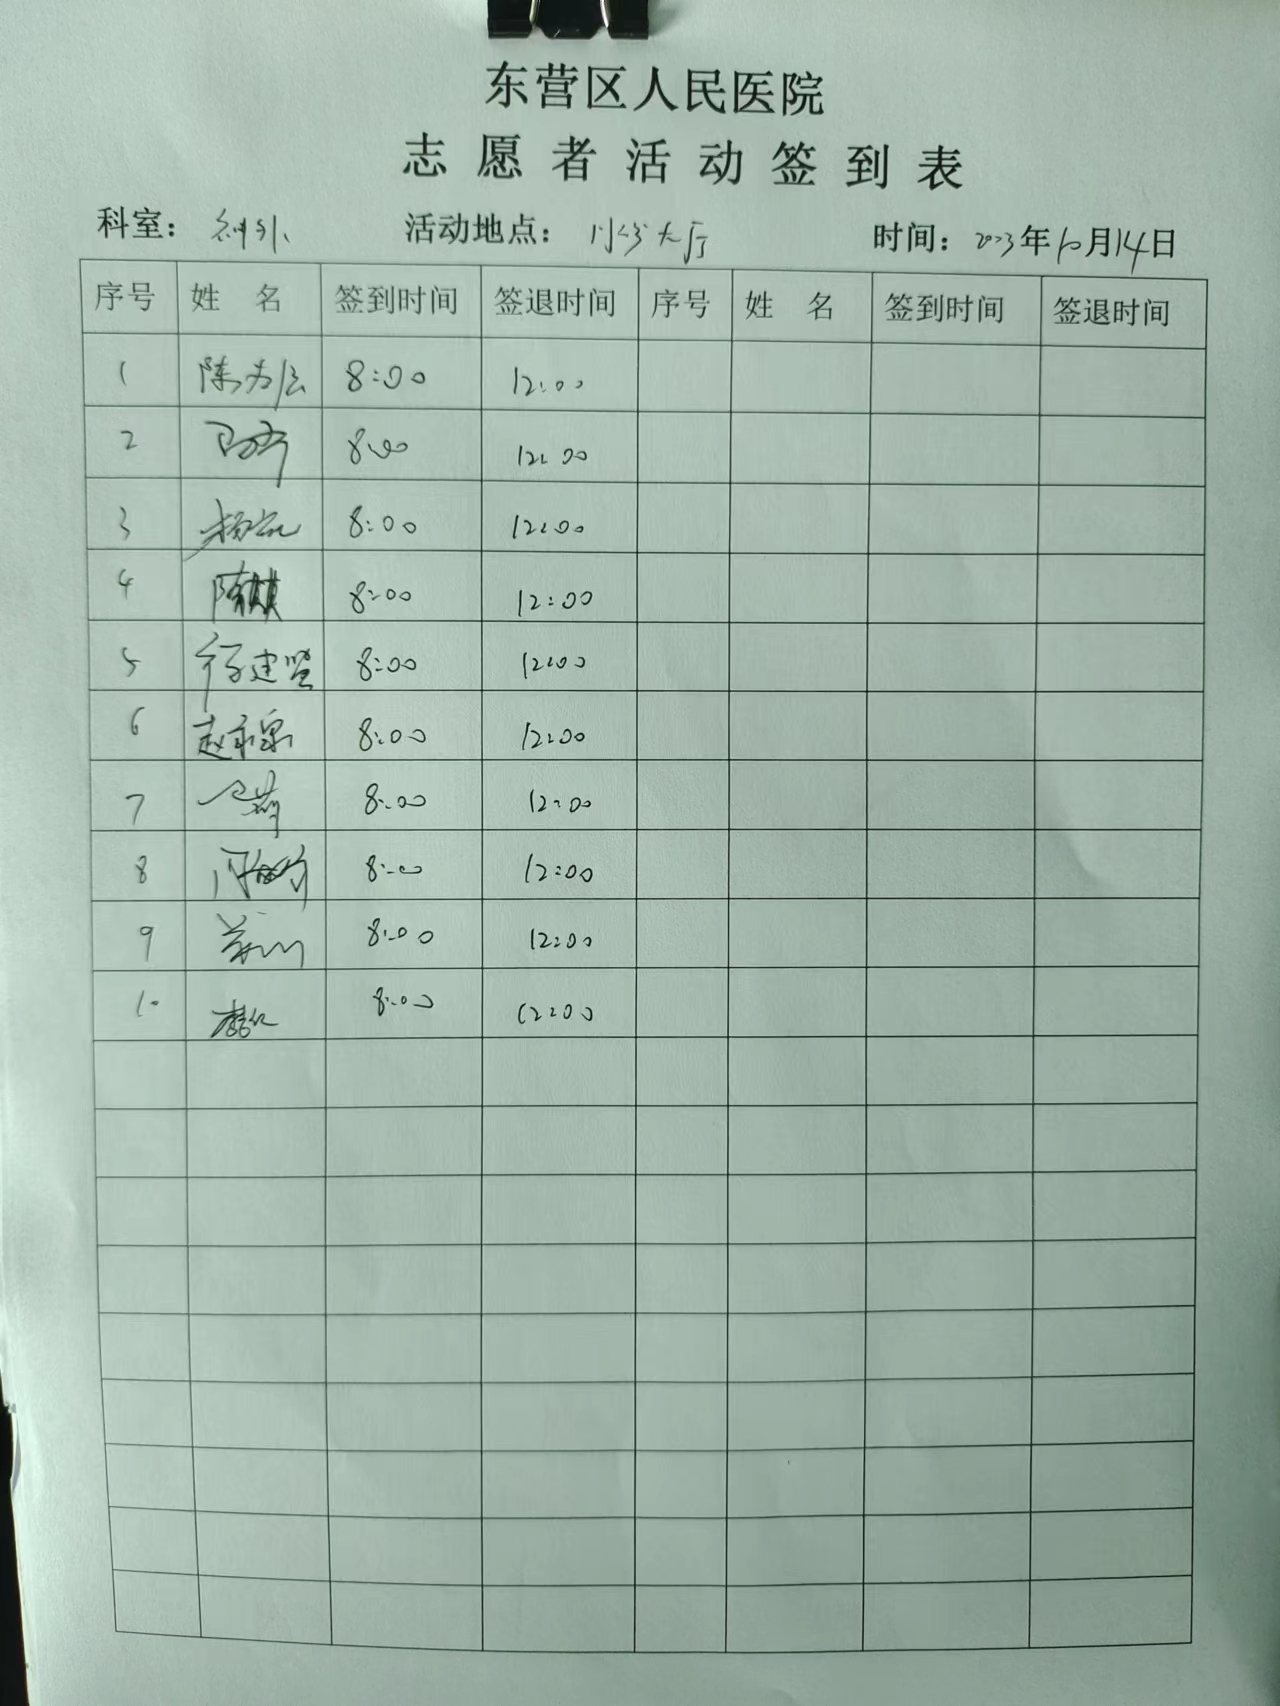 东营区人民医院
志愿者活动签到表
科室：神外 活动地点：门诊大厅 时间：2023年10月14日
序号 姓名 签到时间 签退时间 序号 姓名 签到时间 签退时间
1 陈为 8:00 12:00
2 8:00 12:00
3 杨 8:00 12:00
4 陈 8:00 12:00
5 徐建 8:00 12:00
6 赵永泉 8:00 12:00
7 8:00 12:00
8 8:00 12:00
9 8:00 12:00
10 8:00 12:00